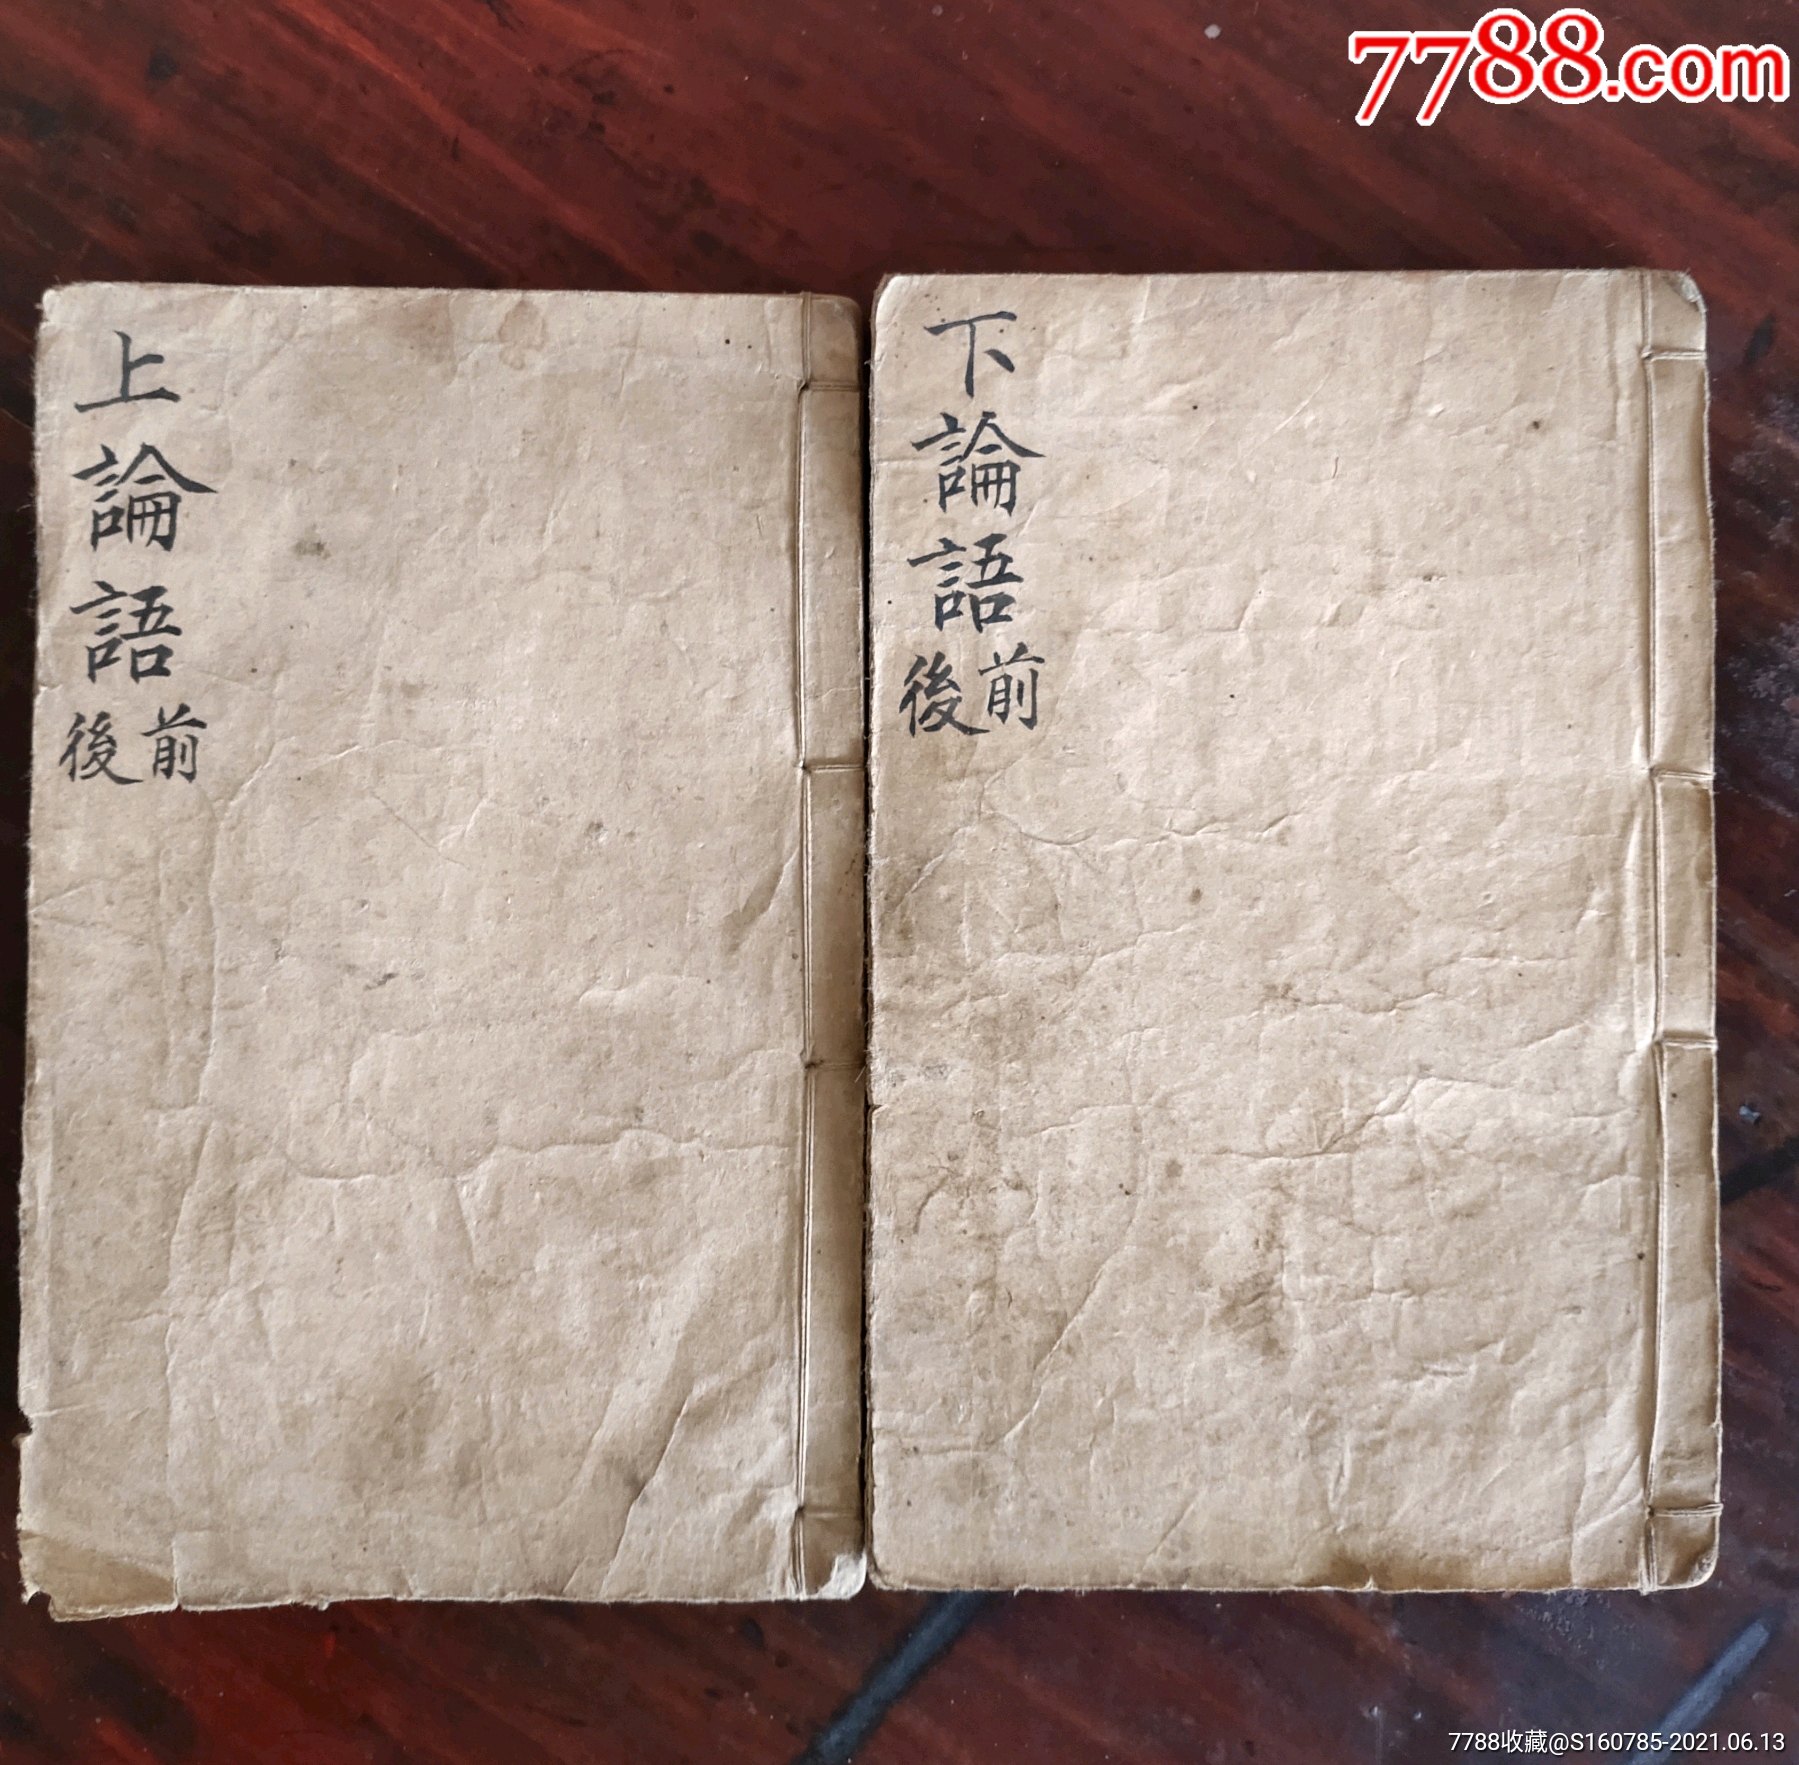 7788.com
上論語
前
後
下論語
前
後
7788收藏@S160785-2021.06.13